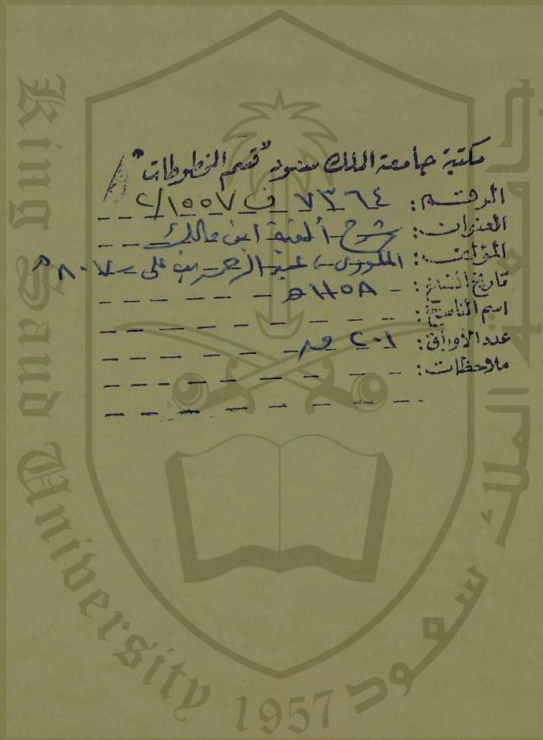 مكتبة جامعة الملك سعود "قسم المخطوطات"
الرقم: ٧٣٦٤ ف ١٥٥٧/٢
العنوان: شرح ألفية ابن مالك
المؤلف: المكودي، عبد الرحمن بن علي - ٨٠٧ هـ
تاريخ النسخ: ١١٥٨ هـ
اسم الناسخ:
عدد الأوراق: ٢٠١ ور
ملاحظات:
King Saud University
1957
جامعة الملك سعود